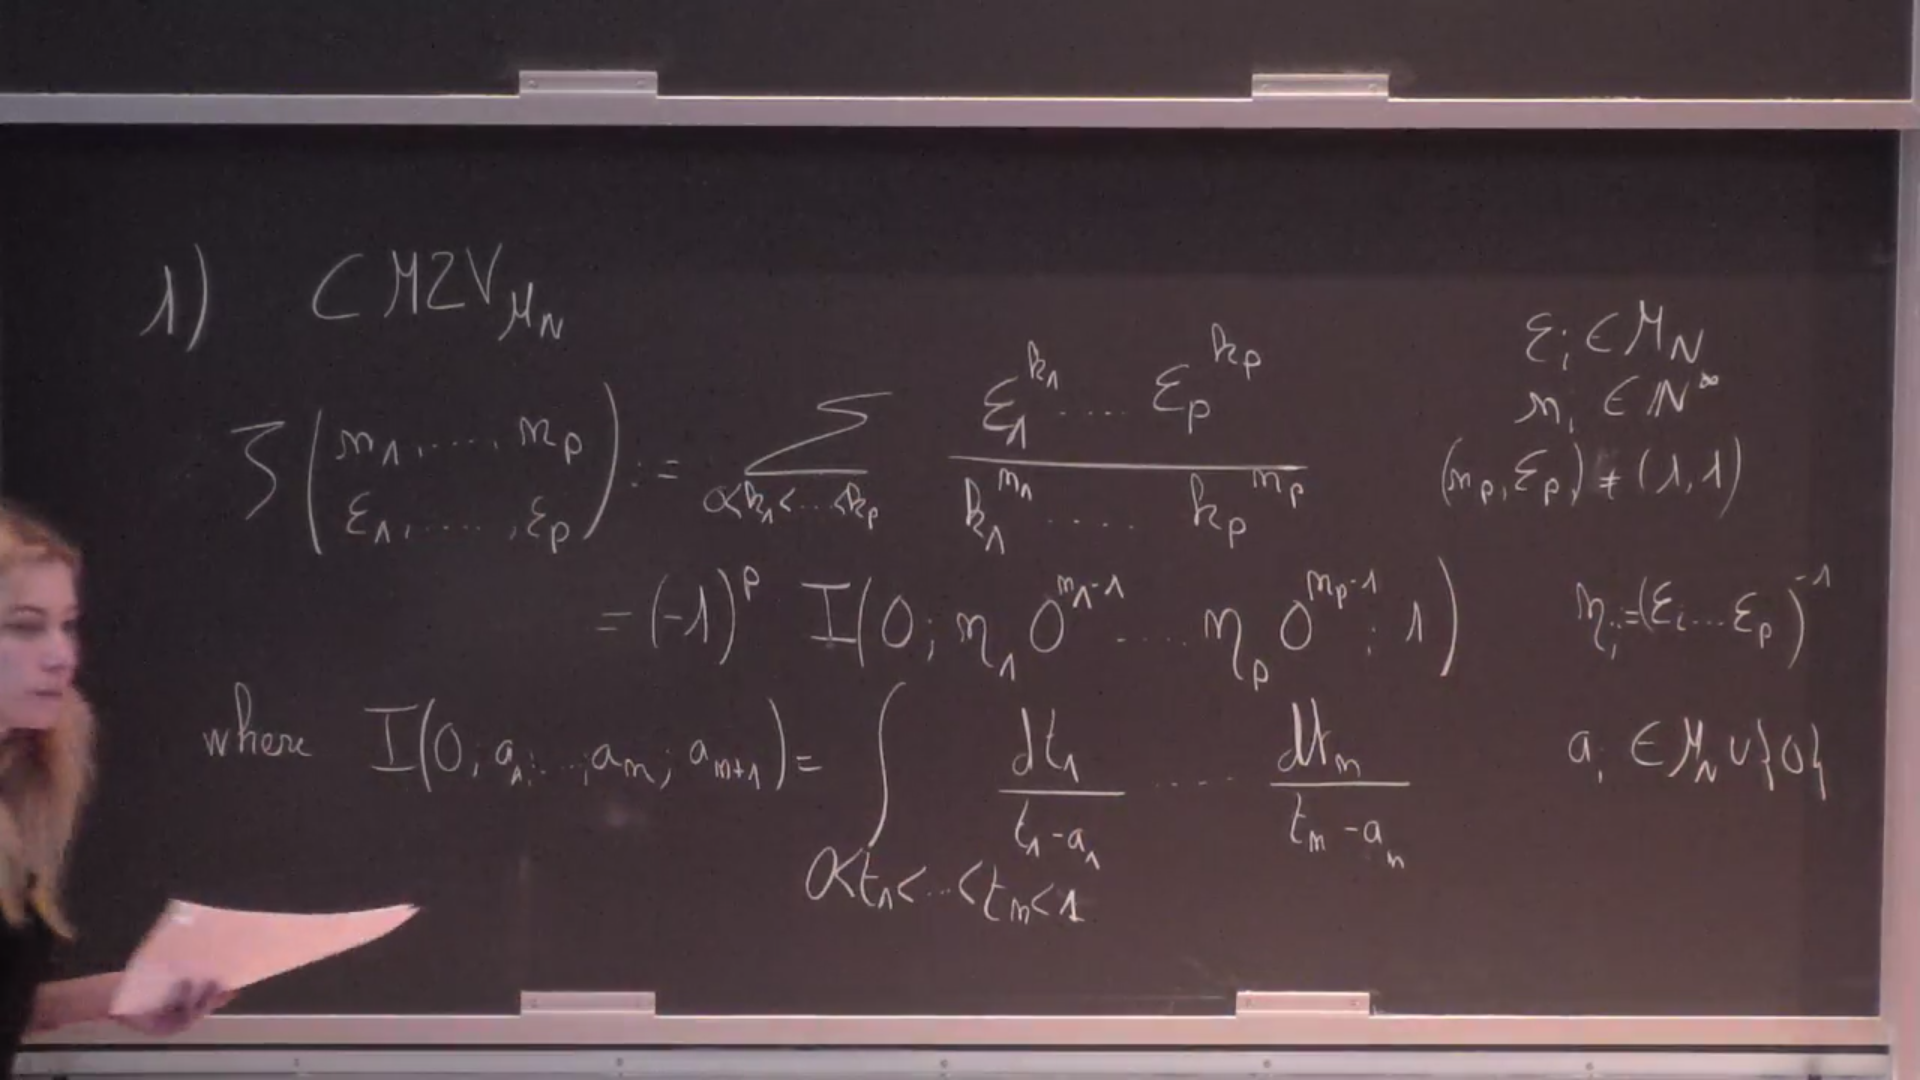 1) CMZV_{μ_N}
ζ(n_1, ...., n_p ; ε_1, ....., ε_p) := Σ_{0<k_1<...<k_p} (ε_1^{k_1} .... ε_p^{k_p}) / (k_1^{n_1} ..... k_p^{n_p})
ε_i ∈ μ_N
n_i ∈ ℕ^*
(n_p, ε_p) ≠ (1,1)
= (-1)^p I(0; η_1 0^{n_1-1} ..... η_p 0^{n_p-1}; 1) η_i := (ε_i ... ε_p)^{-1}
where I(0; a_1, ..., a_m; a_{m+1}) = ∫_{0<t_1<...<t_m<1} dt_1/(t_1-a_1) ..... dt_m/(t_m-a_m) a_i ∈ μ_N ∪ {0}